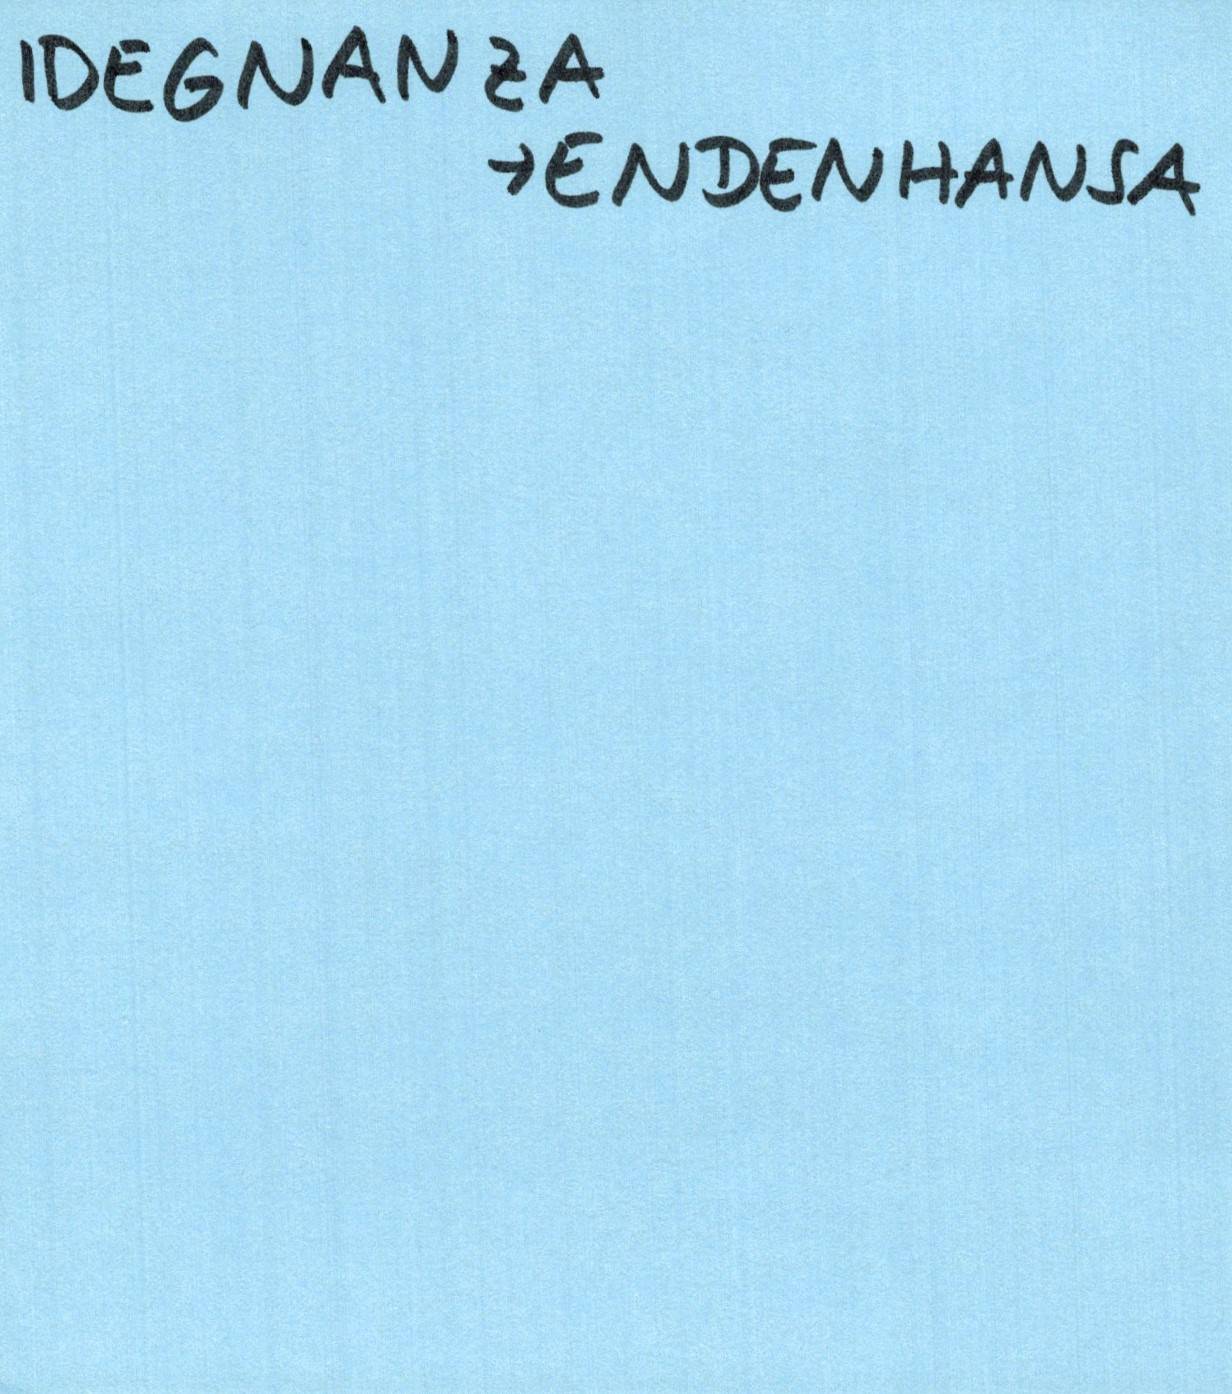 IDEGNANZA
→ENDENHANSA